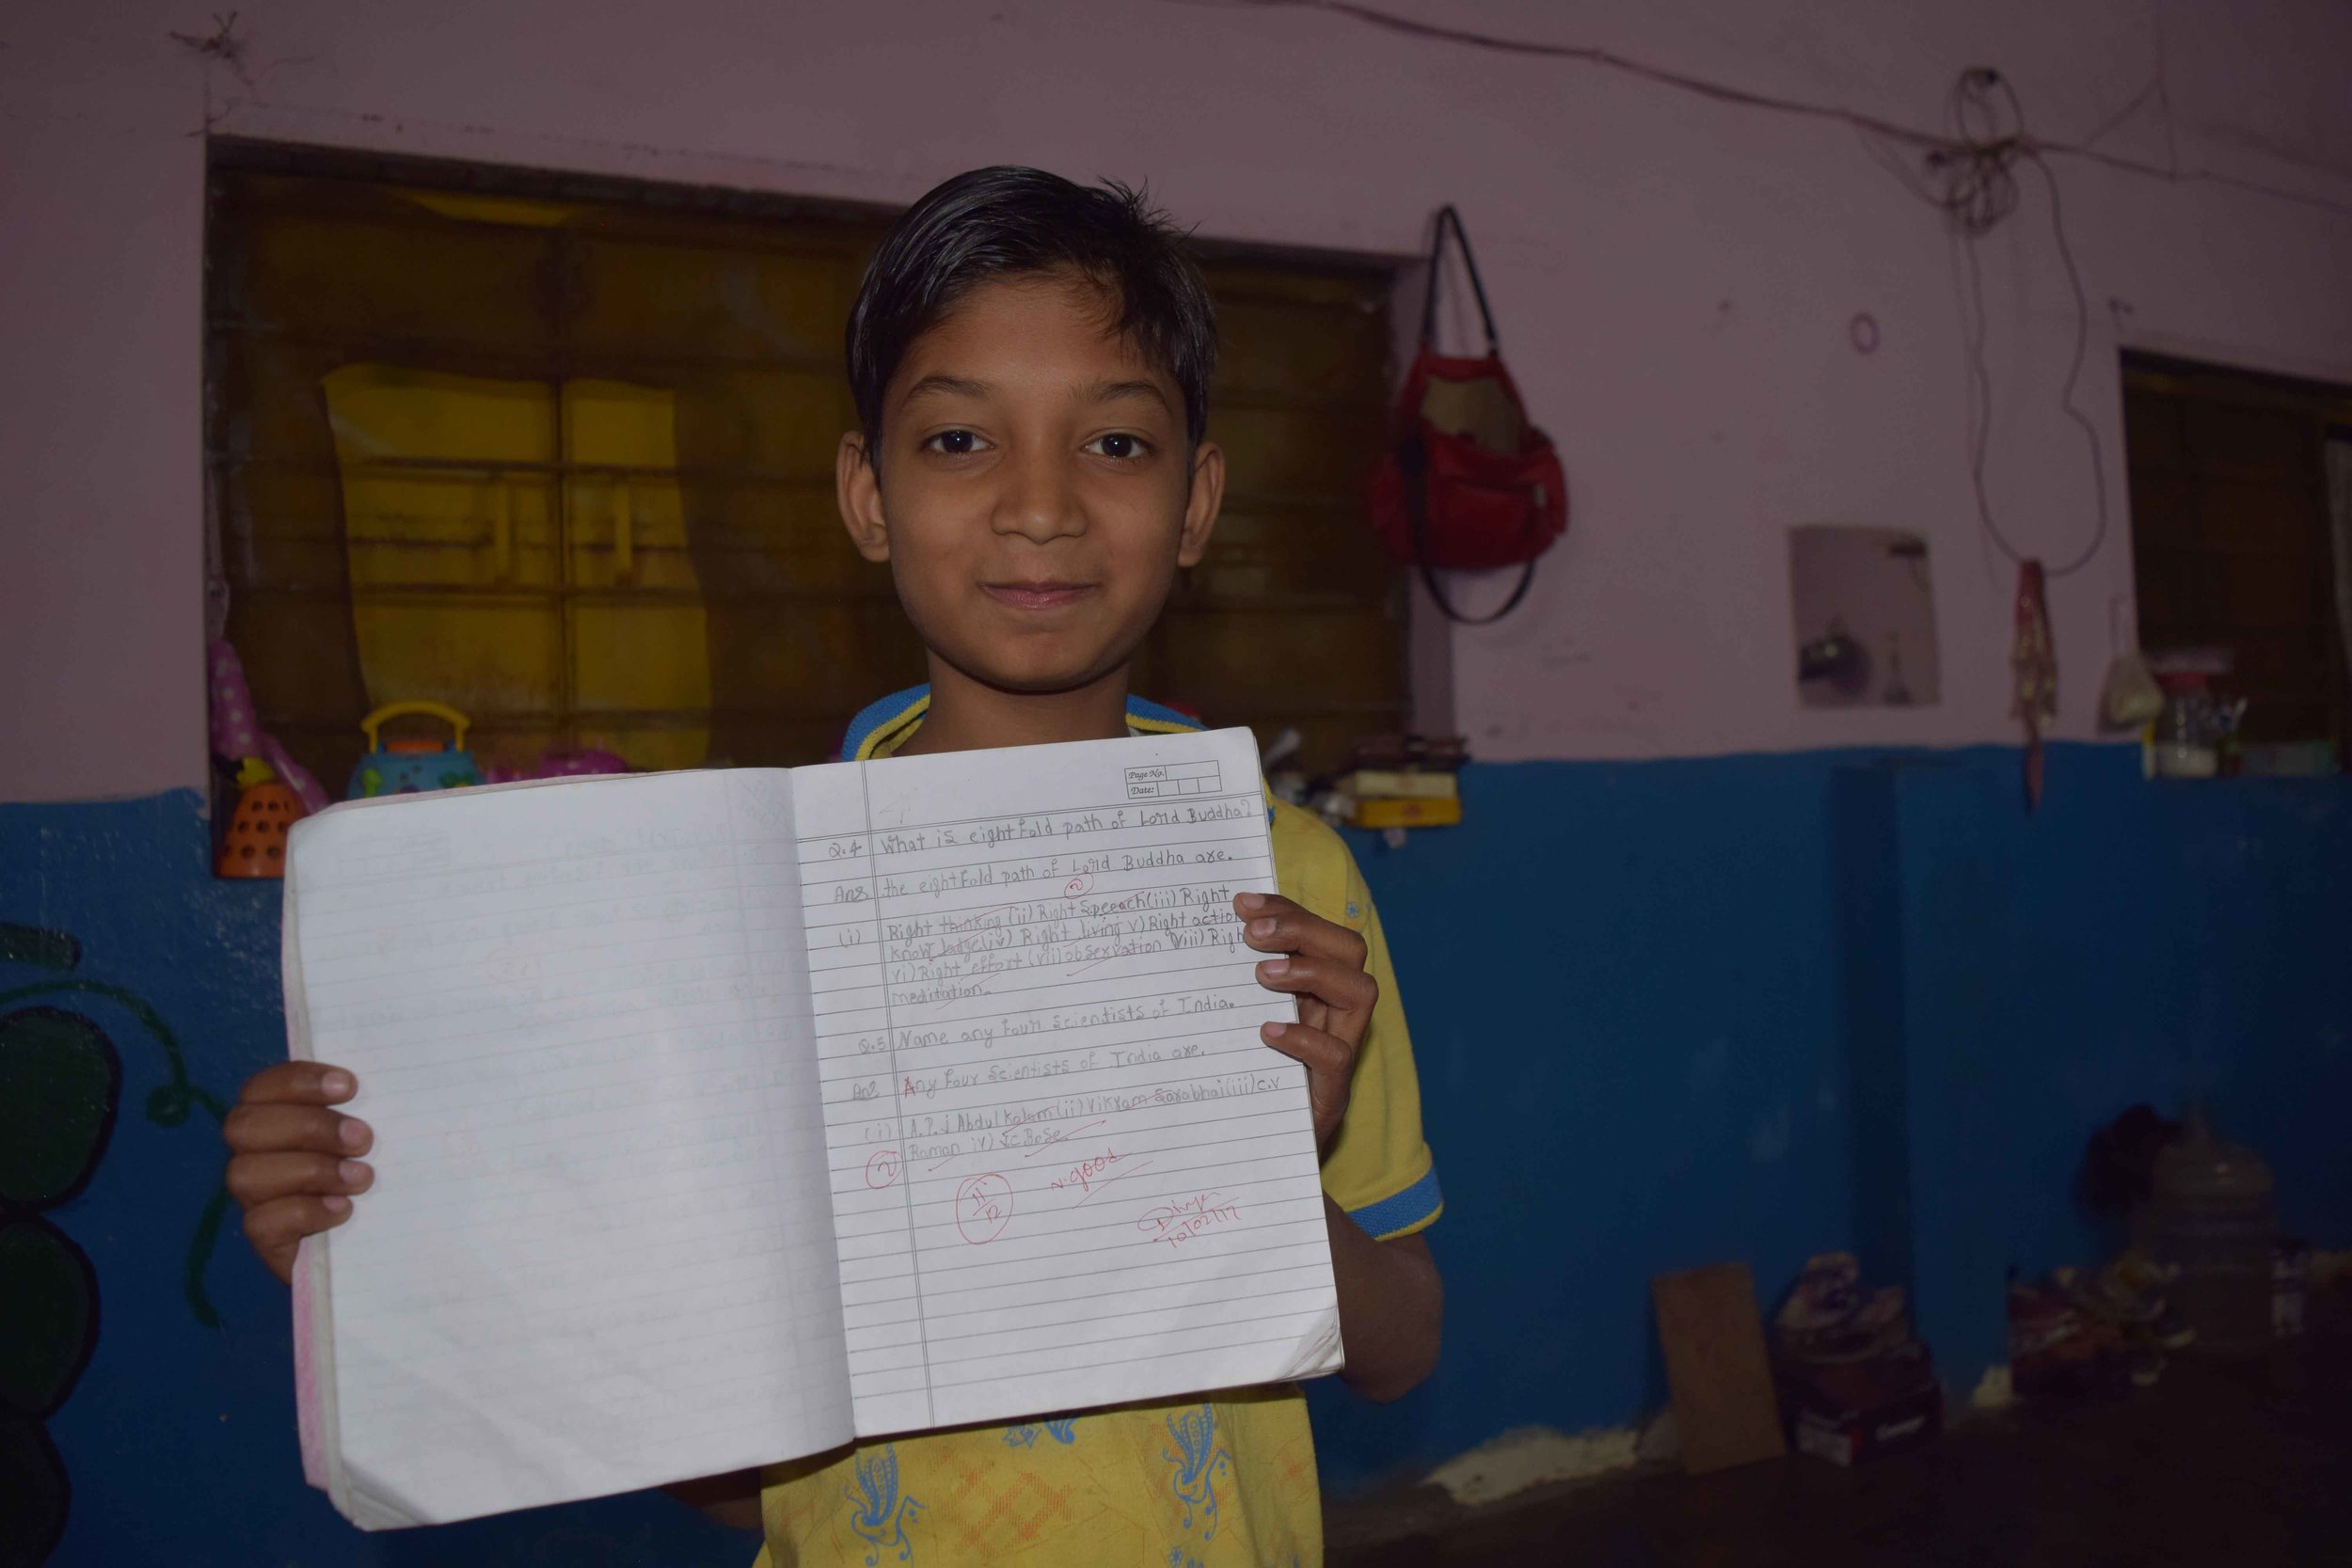 Page No.
Date:
Q.4 What is eight fold path of Lord Buddha?
Ans the eight fold path of Lord Buddha are.
2
(i) Right thinking (ii) Right Speech (iii) Right
know ladge (iv) Right living v) Right action
vi) Right effort (vii) observation viii) Righ
meditation.
Q.5 Name any four scientists of India.
Ans Any four scientists of India are.
(i) A.P.J Abdul Kalam (ii) Vikram Sarabhai (iii) C.V
Raman iv) J.C Bose.
2
11/12 v.good
10/02/17